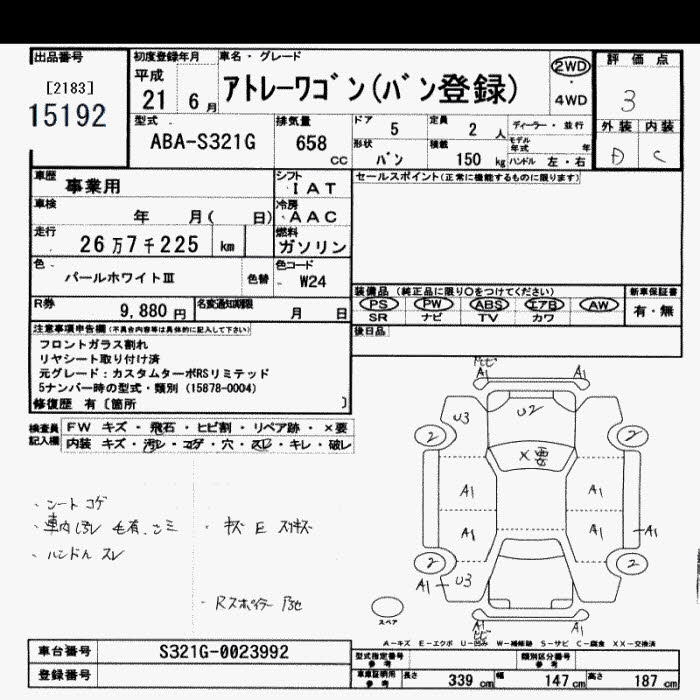 出品番号
[2183]
15192
初度登録年月
平成
21 6月
車名・グレード
アトレーワゴン(バン登録)
2WD
・
4WD
評価点
3
外装 内装
D C
型式
ABA-S321G
排気量
658 cc
ドア 5
定員 2 人
ディーラー・並行
形状 バン
積載 150 kg
モデル年式 年
ハンドル 左・右
車歴 事業用
シフト IAT
車検 年 月( 日)
冷房 AAC
走行 26万7千225 km
燃料 ガソリン
色 パールホワイトⅢ 色替
色コード W24
R券 9,880 円
名変通知期限 月 日
セールスポイント(正常に機能するものに限ります)
装備品 (純正品に限り○をつけてください)
PS PW ABS エアB AW
SR ナビ TV カワ
新車保証書
有・無
後日品
注意事項申告欄(不具合内容等は具体的に記入して下さい)
フロントガラス割れ
リヤシート取り付け済
元グレード:カスタムターボRSリミテッド
5ナンバー時の型式・類別(15878-0004)
修復歴 有〔箇所 〕
検査員記入欄
FW キズ・飛石・ヒビ割・リペア跡・×要
内装 キズ・汚レ・コゲ・穴・スレ・キレ・破レ
・シート コゲ
・車内 汚レ 毛有.ゴミ
・ハンドル スレ
・キズ E スリキズ
・Rスポイラー
ヒビ
A1 A1
U3 U2
2 2
×要
A1 A1
A1 A1 A1
2 2
A1 U3
スペア
A1 A1
ヒビ
A-キズ E-エクボ U-凹み W-補修跡 S-サビ C-腐食 XX-交換済
車台番号 S321G-0023992
登録番号
型式指定番号 参考
類別区分番号 参考
車庫証明用 参考
長さ 339 cm
幅 147 cm
高さ 187 cm